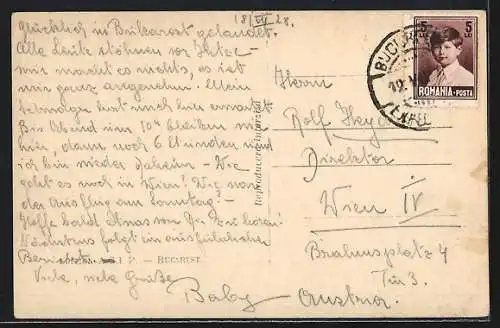 18/VII 28.
Glücklich in Bukarest gelandet.
Alle Leute stöhnen vor Hitze -
mir macht es nichts, es ist
mir ganz angenehm. Mein
hat mich hier erwartet
Bis Abend um 10h bleiben wir
hier, dann noch 6 Stunden und
ich bin wieder daheim - Wie
geht es noch in Wien? Wie war
der Ausflug am Sonntag? -
Hoffe bald etwas von Dir zu hören.
Nächstens folgt ein ausführlicher
Bericht.
Viele, viele Grüße
Baby
I.P. - BUCAREST
Reproducerea interzisă
5 LEI 5 LEI
ROMANIA-POSTA
BUCUR
EXPED
Herrn
Rolf Heyd
Direktor
Wien IV
Brahmsplatz 4
Tür 3.
Austria.